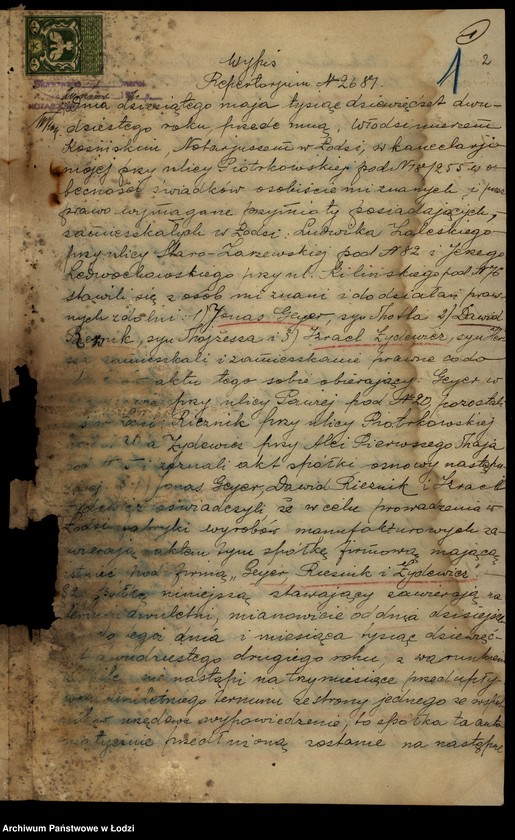 1
2
1
Wypis
Repertorjum N 2687.
Dnia dziesiątego maja tysiąc dziewięćset dwu-
dziestego roku, przede mną, Włodzimierzem
Kosińskim, Notarjuszem w Łodzi, w kancelarji
mojej przy ulicy Piotrkowskiej pod N 255 w o-
becności świadków osobiście mi znanych i
prawo wymagane przymioty posiadających,
zamieszkałych w Łodzi: Ludwika Zaleskiego
przy ulicy Staro-Zarzewskiej pod N 82 i Jerzego
Ledwochowskiego przy ul. Kilińskiego pod N 76
stawili się z osób mi znani i do działań praw-
nych zdolni: 1) Jonas Geyer, syn Motla 2) Dawid
Rieznik, syn Mojżesza i 3) Izrael Zydewicz, syn
zamieszkali i zamieszkanie prawne co do
aktu tego sobie obierający: Geyer w
przy ulicy pod N 20, pozostali
Rieznik przy ulicy Piotrkowskiej
a Zydewicz przy Alei Pierwszego Maja
i zeznali akt spółki osnowy następu-
Jonas Geyer, Dawid Rieznik i Izrael
Zydewicz oświadczyli że w celu prowadzenia w
Łodzi fabryki wyrobów manufakturowych za-
wierają aktem tym spółkę firmową mającą
istnieć pod firmą "Geyer, Rieznik i Zydewicz".
§2. Spółkę niniejszą stawający zawierają na
termin dwuletni, mianowicie od dnia dzisiejsze-
do ego dnia i miesiąca tysiąc dziewięć-
set dwudziestego drugiego roku, z warunkiem
że nie nastąpi na trzy miesiące przed upły-
wem dwuletniego terminu ze strony jednego ze wspól-
ników urzędowe wypowiedzenie, to spółka ta auto-
matycznie przedłużoną zostanie na następne
Archiwum Państwowe w Łodzi